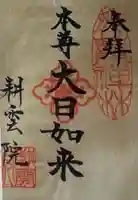 奉拜
本尊大日如来
耕雲院